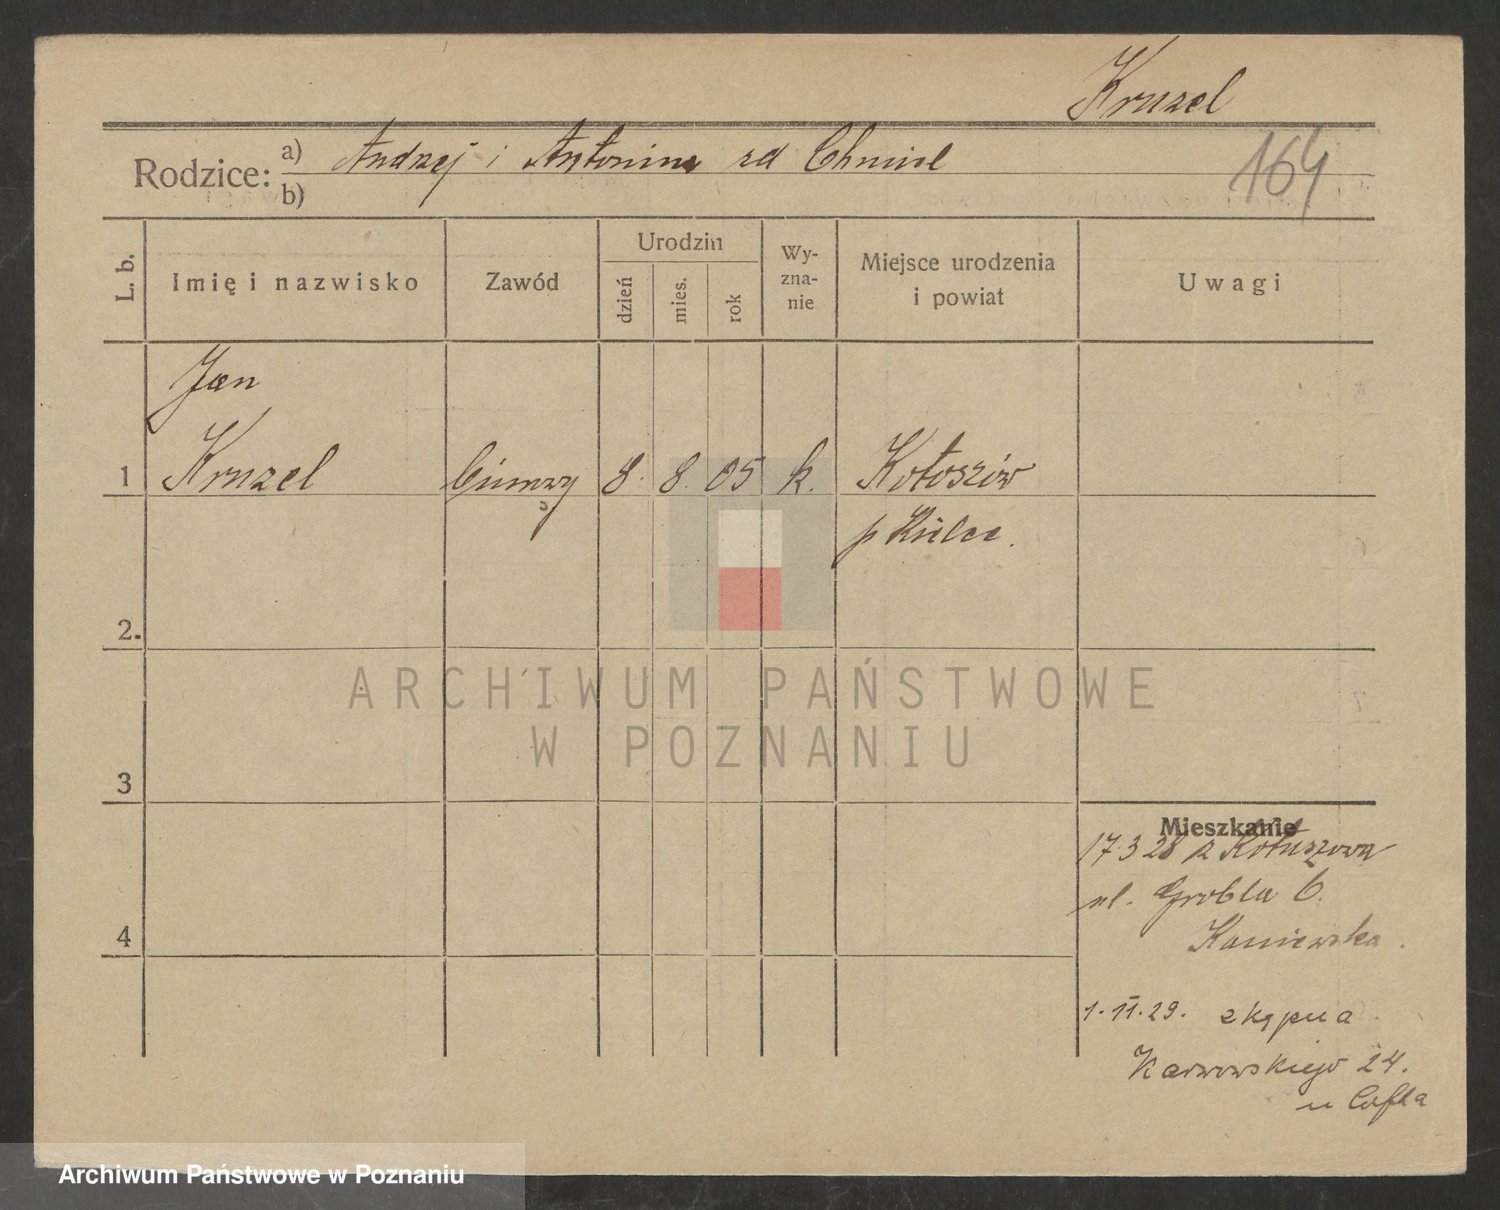 Kruzel
164
Rodzice: a) Andrzej i Antonina zd Chmiel
b)
L. b.
Imię i nazwisko
Zawód
Urodzin
dzień
mies.
rok
Wy-
zna-
nie
Miejsce urodzenia
i powiat
Uwagi
Jan
1 Kruzel 8. 8. 05 k. Kotoszów
p Kielce.
2.
3
4
Mieszkanie
17 3 28 z Kotuszowa
ul. Grobla 6.
Kaniewska.
1. II. 29.
Karwowskiego 24.
u
ARCHIWUM PAŃSTWOWE
W POZNANIU
Archiwum Państwowe w Poznaniu